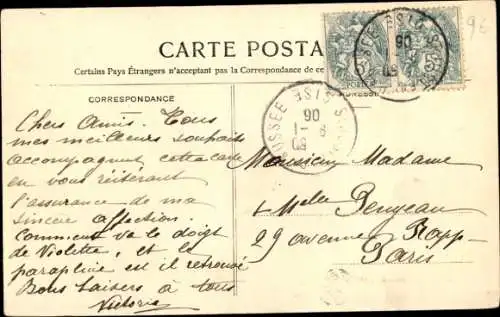 CARTE POSTA
Certains Pays Étrangers n'acceptant pas la Correspondance de ce
CORRESPONDANCE
Chers Amis. Tous
mes meilleurs souhaits
accompagnent cette carte
en vous réiterant
l'assurance de ma
sincère affection.
Comment va le doigt
de Violette, et le
parapluie est il retrouvé
Bons baisers à tous
Victoria
ADRESSE
96
Monsieur Madame
+ Melle
29 avenue Rapp
Paris